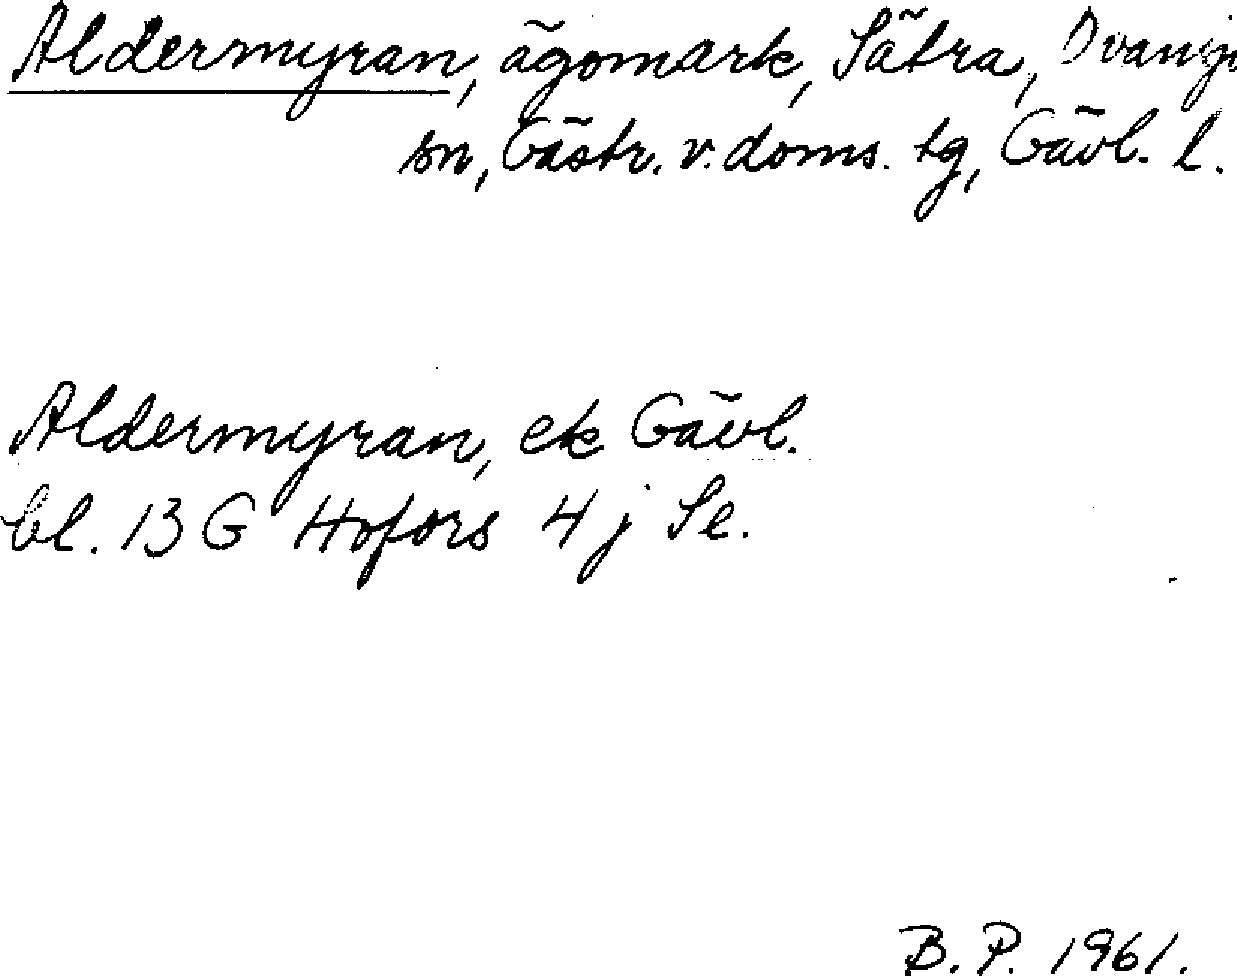 Aldermyran, ägomark, Sätra,
sn, Gästr. v. doms. tg, Gävl. l.
Aldermyran, ek Gävl.
bl. 13 G Hofors 4 j Se.
B. P. 1961.